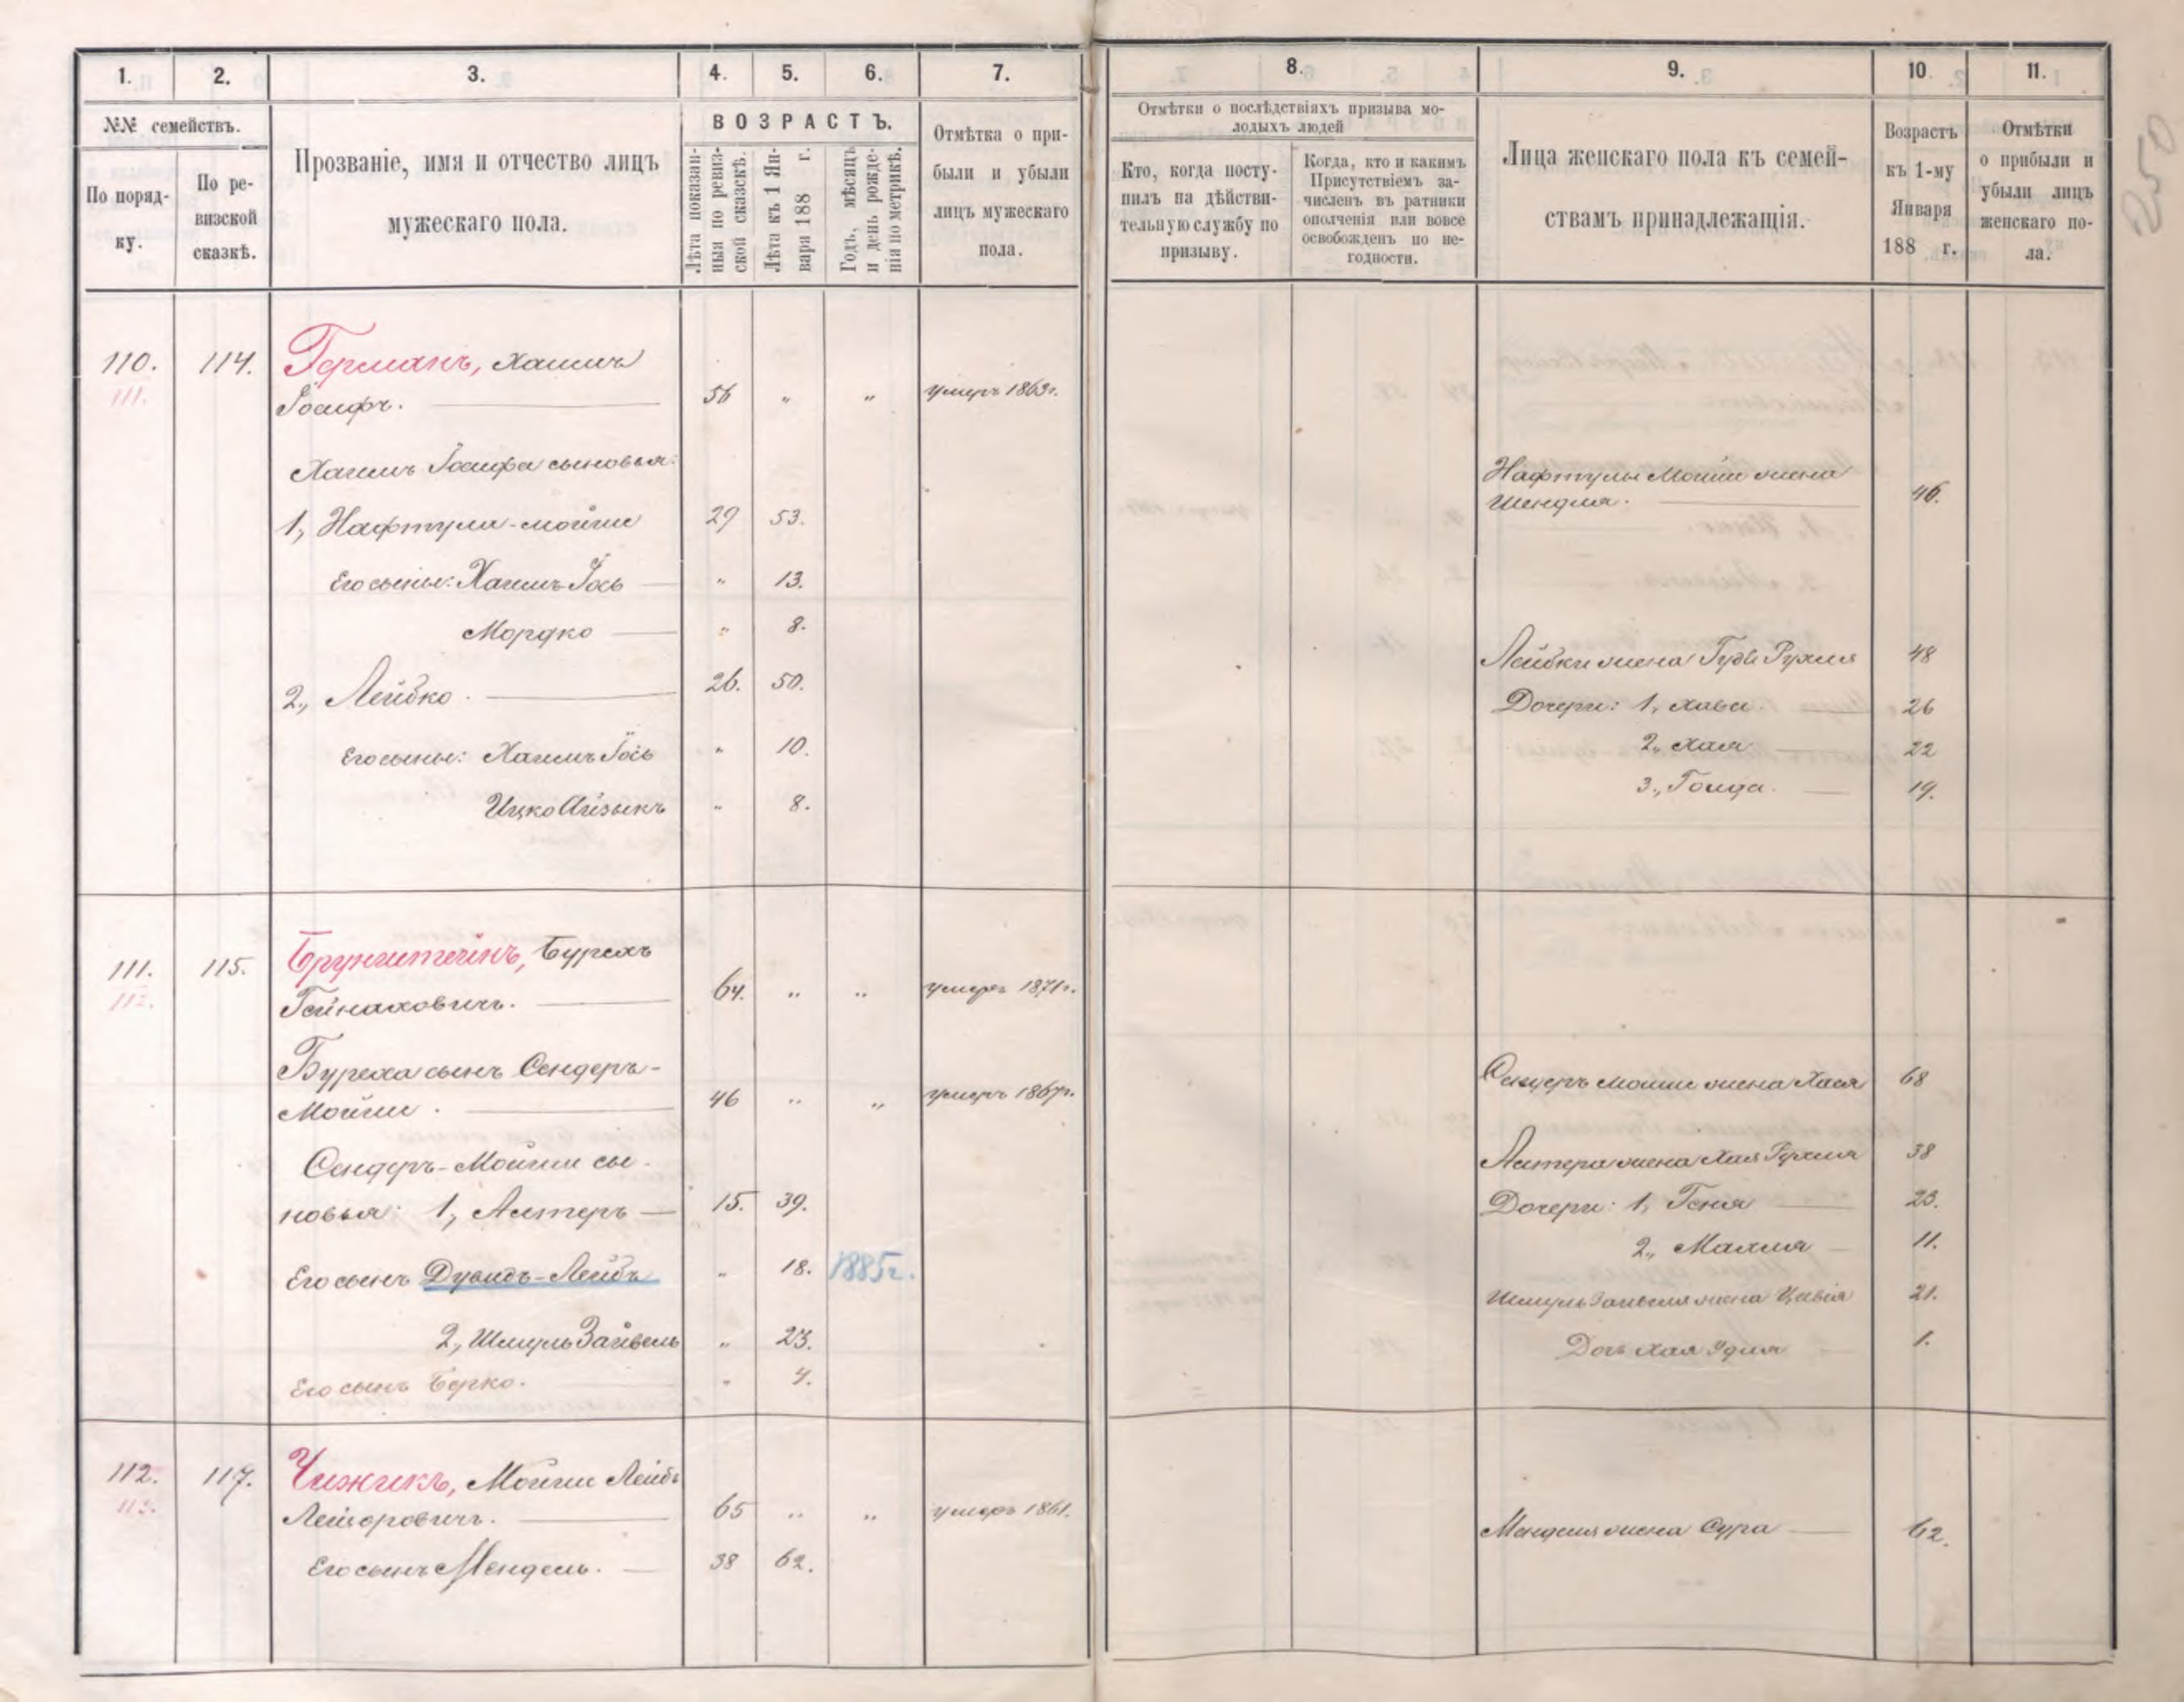 250
1.
2.
3.
4.
5.
6.
7.
8.
9.
10
11.
№№ семействъ.
По поряд-
ку.
По ре-
визской
сказкѣ.
Прозваніе, имя и отчество лицъ
мужескаго пола.
ВОЗРАСТЪ.
Лѣта показан-
ныя по ревиз-
ской сказкѣ.
Лѣта къ 1 Ян-
варя 188 г.
Годъ, мѣсяцъ
и день рожде-
нія по метрикѣ.
Отмѣтка о при-
были и убыли
лицъ мужескаго
пола.
Отмѣтки о послѣдствіяхъ призыва мо-
лодыхъ людей
Кто, когда посту-
пилъ на дѣйстви-
тельную службу по
призыву.
Когда, кто и какимъ
Присутствіемъ за-
численъ въ ратники
ополченія или вовсе
освобожденъ по не-
годности.
Лица женскаго пола къ семей-
ствамъ принадлежащія.
Возрастъ
къ 1-му
Января
188 г.
Отмѣтки
о прибыли и
убыли лицъ
женскаго по-
ла.
110. 114. Германъ, Хаимъ
111. Іосифъ. 56 " " умеръ 1863г.
Хаимъ Іосифа сыновья:
1, Нафтула-Мойше 29 53.
Его сыны: Хаимъ Іось " 13.
Мордко " 8.
2, Лейбко. 26. 50.
Его сыны: Хаимъ Іось " 10.
Ицко Айзыкъ " 8.
Нафтулы Мойше жена
Шендля. 46.
Лейбки жена Гудя Рухля 48
Дочери: 1, Хава. 26
2, Хая 22
3, Голда. 19.
111. 115. Брунштейнъ, Бурехъ
112. Гейнаховичъ. 64. " " умеръ 1871г.
Буреха сынъ Сендеръ-
Мойше. 46 " " умеръ 1867г.
Сендеръ-Мойше сы-
новья: 1, Алтеръ 15. 39.
Его сынъ Дувидъ-Лейбъ " 18. 1885г.
2, Шмуль Зайвель " 23.
Его сынъ Берко. " 4.
Сендеръ Мойше жена Хася 68
Алтера жена Хая Рухля 38
Дочери: 1, Геня 23.
2, Махля 11.
Шмуль Зайвеля жена Цивія 21.
Дочь Хая Удля 1.
112. 117. Чижикъ, Мойше Лейбъ
113. Лейзоровичъ. 65 " " умеръ 1861.
Его сынъ Мендель. 38 62.
Менделя жена Сура 62.